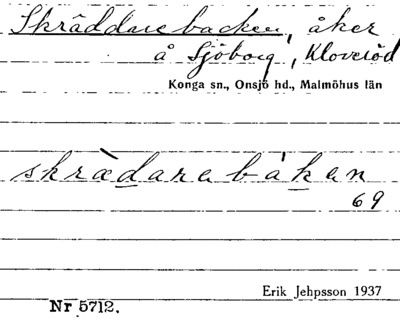 Skräddarebacken, åker
å Sjöborg, Kloveröd
Konga sn., Onsjö hd., Malmöhus län
skrädarebáken
69
Erik Jehpsson 1937
Nr 5712.